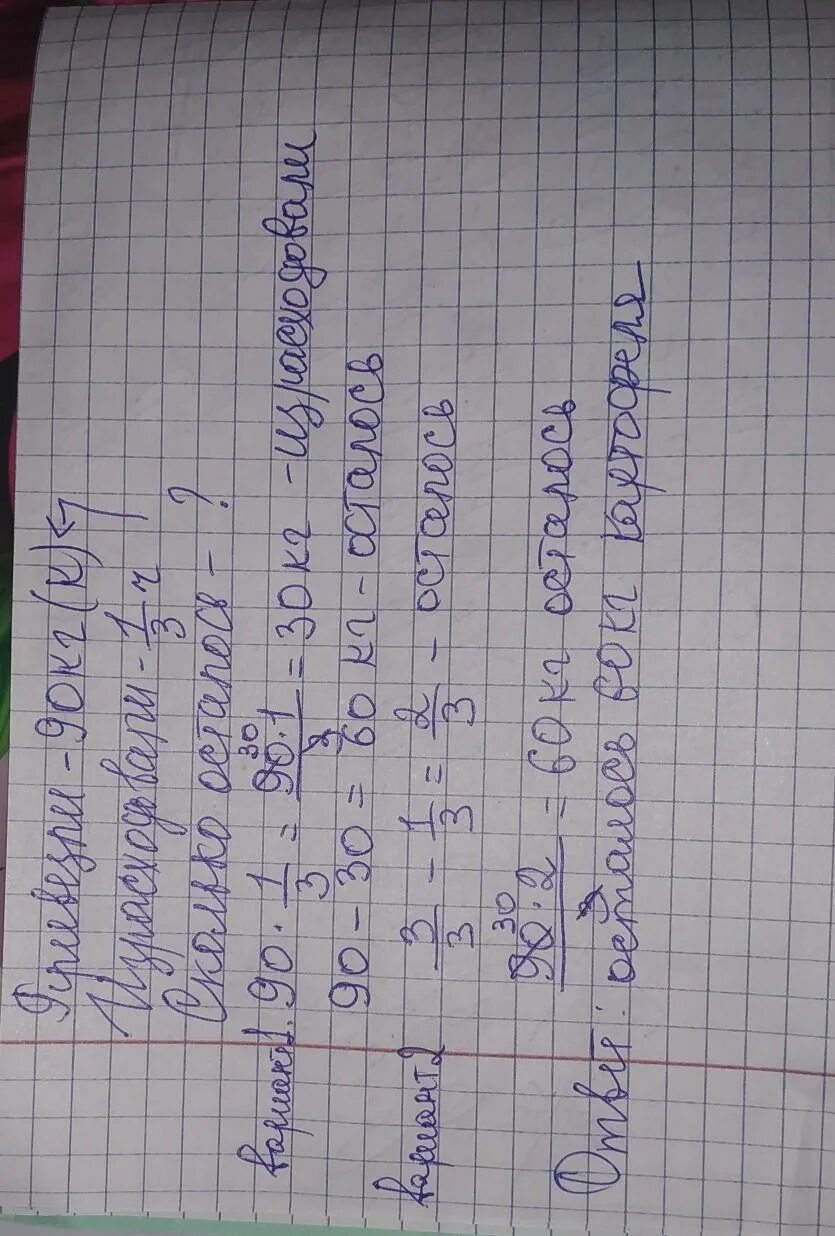 Привезли - 90 кг (к)
Израсходовали - 1/3 ч
Сколько осталось - ?
вариант 1. 90 · 1/3 = 90 · 1/3 = 30 кг - израсходовали
30
90 - 30 = 60 кг - осталось
вариант 2 3/3 - 1/3 = 2/3 - осталось
30
90 · 2/3 = 60 кг осталось
Ответ: осталось 60 кг картофеля